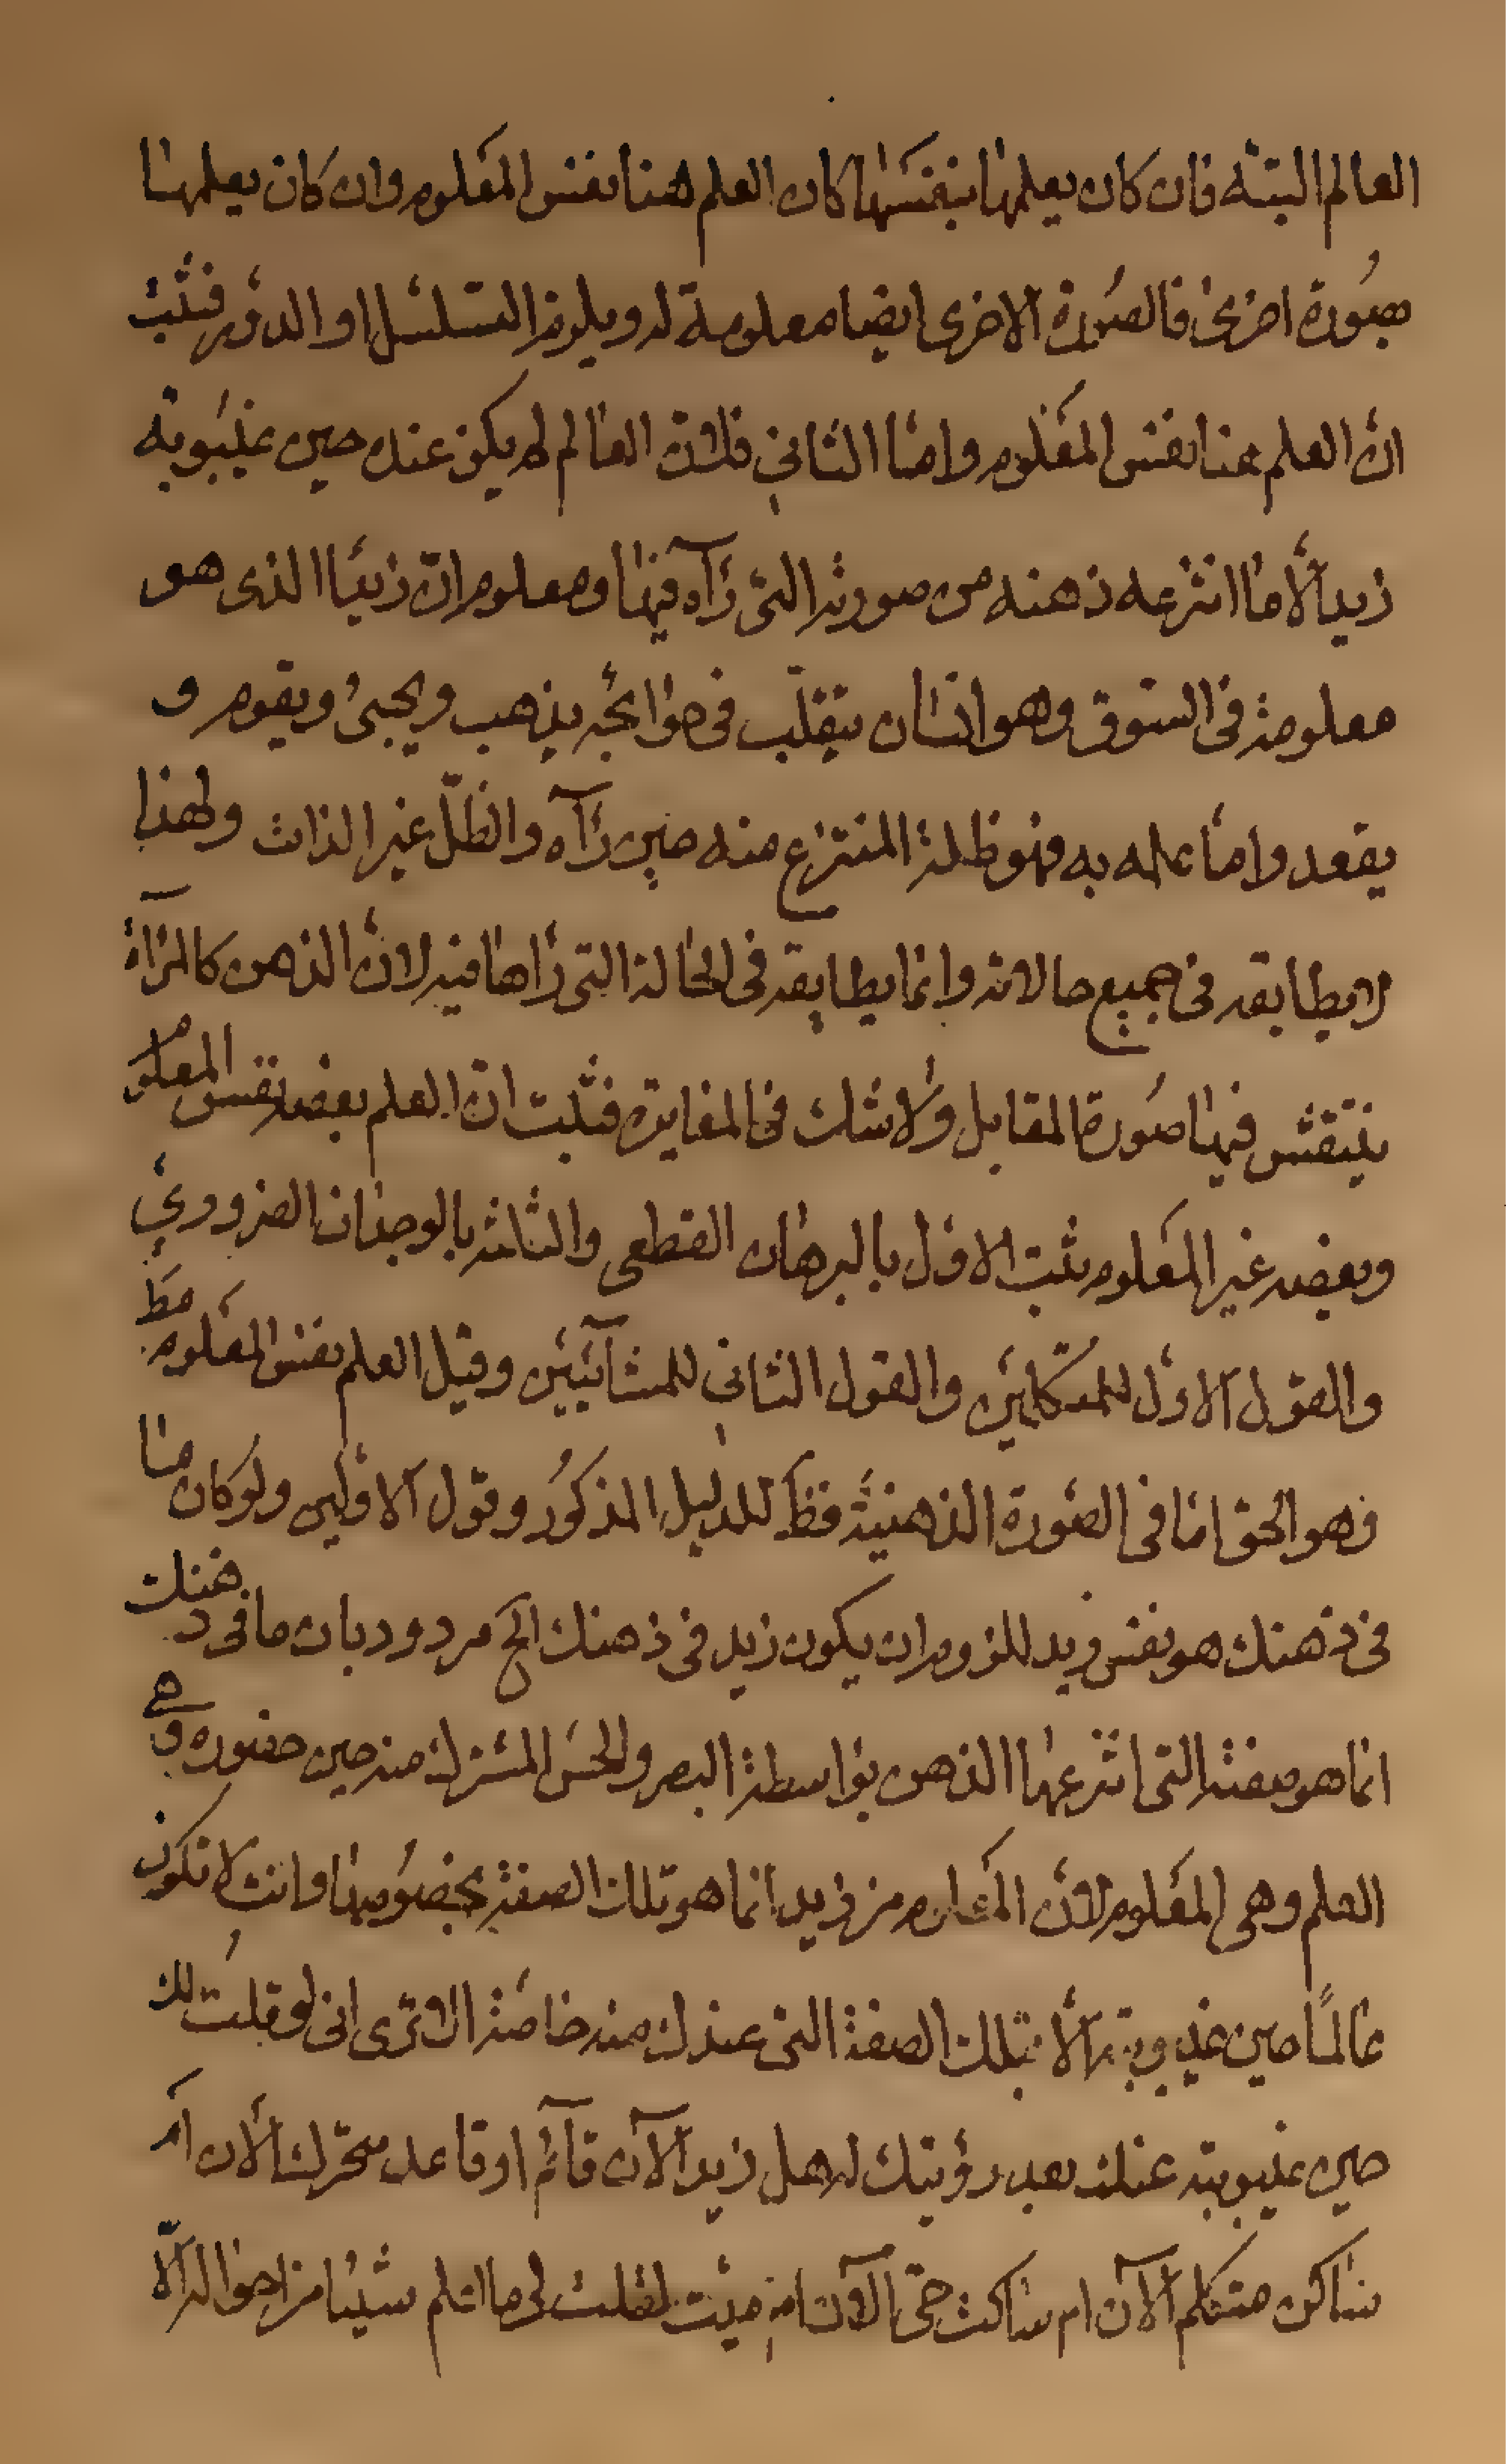 العالم البتة فان كان يعلمها بنفسها كان العلم هنا نفس المعلوم وان كان يعلمها
بصورة اخرى فالصورة الاخرى ايضا معلومة له ويلزم التسلسل او الدور فثبت
ان العلم هنا نفس المعلوم واما الثاني فلان العالم لم يكن عنده حين غيبوبة
زيد الا ما انتزعه ذهنه من صورته التي رآه فيها ومعلوم ان زيدا الذي هو
معلومه في السوق وهو انسان يتقلب في حوائجه يذهب ويجيئ ويقوم و
يقعد واما علمه به فهو ظله المنتزع منه حين رآه والظل غير الذات ولهذا
لا يطابقه في جميع حالاته وانما يطابقه في الحالة التي رآها فيه لان الذهن كالمرآة
ينتقش فيها صورة المقابل ولا شك في المغايرة فثبت ان العلم بعضه نفس المعلوم
وبعضه غير المعلوم يثبت الاول بالبرهان القطعي والثاني بالوجدان الضروري
والقول الاول للمتكلمين والقول الثاني للمشائيين وقيل العلم نفس المعلوم مط
وهو الحق اما في الصورة الذهنية فظ للدليل المذكور وقول الاولين ولو كان ما
في ذهنك هو نفس زيد للزم ان يكون زيد في ذهنك الخ مردود بان ما في ذهنك
انما هو صفته التي انتزعها الذهن بواسطة البصر والحس المشترك منه حين حضوره وهي
العلم وهي المعلوم لان المعلوم من زيد انما هو تلك الصفة بخصوصها وانت لا تكون
عالما حين غيبوبته الا بتلك الصفة التي عندك منه خاصة الا ترى اني لو قلت لك
حين غيبوبته عنك بعد رؤيتك له هل زيد الآن قائم او قاعد متحرك الآن ام
ساكن متكلم الآن ام ساكت حي الآن ام ميت لقلت لي ما اعلم شيئا من احواله الا